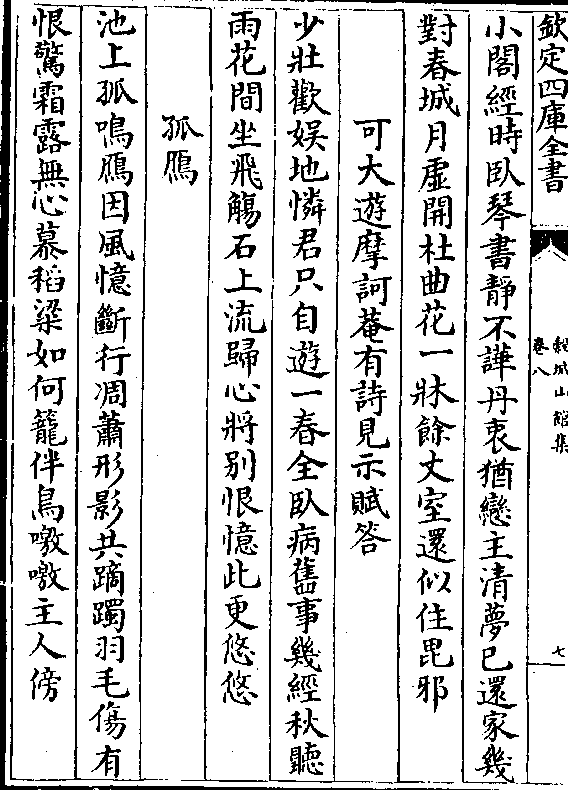 欽定四庫全書
穀城山館集
卷八
七
小閣經時臥琴書靜不譁丹衷猶戀主清夢已還家幾
對春城月虛開杜曲花一牀餘丈室還似住毘邪
可大遊摩訶菴有詩見示賦答
少壯歡娱地憐君只自遊一春全臥病舊事幾經秋聽
雨花間坐飛觴石上流歸心將别恨憶此更悠悠
孤鴈
池上孤鳴鴈因風憶斷行凋蕭形影共蹢躅羽毛傷有
恨驚霜露無心慕稻粱如何籠伴鳥噭噭主人傍